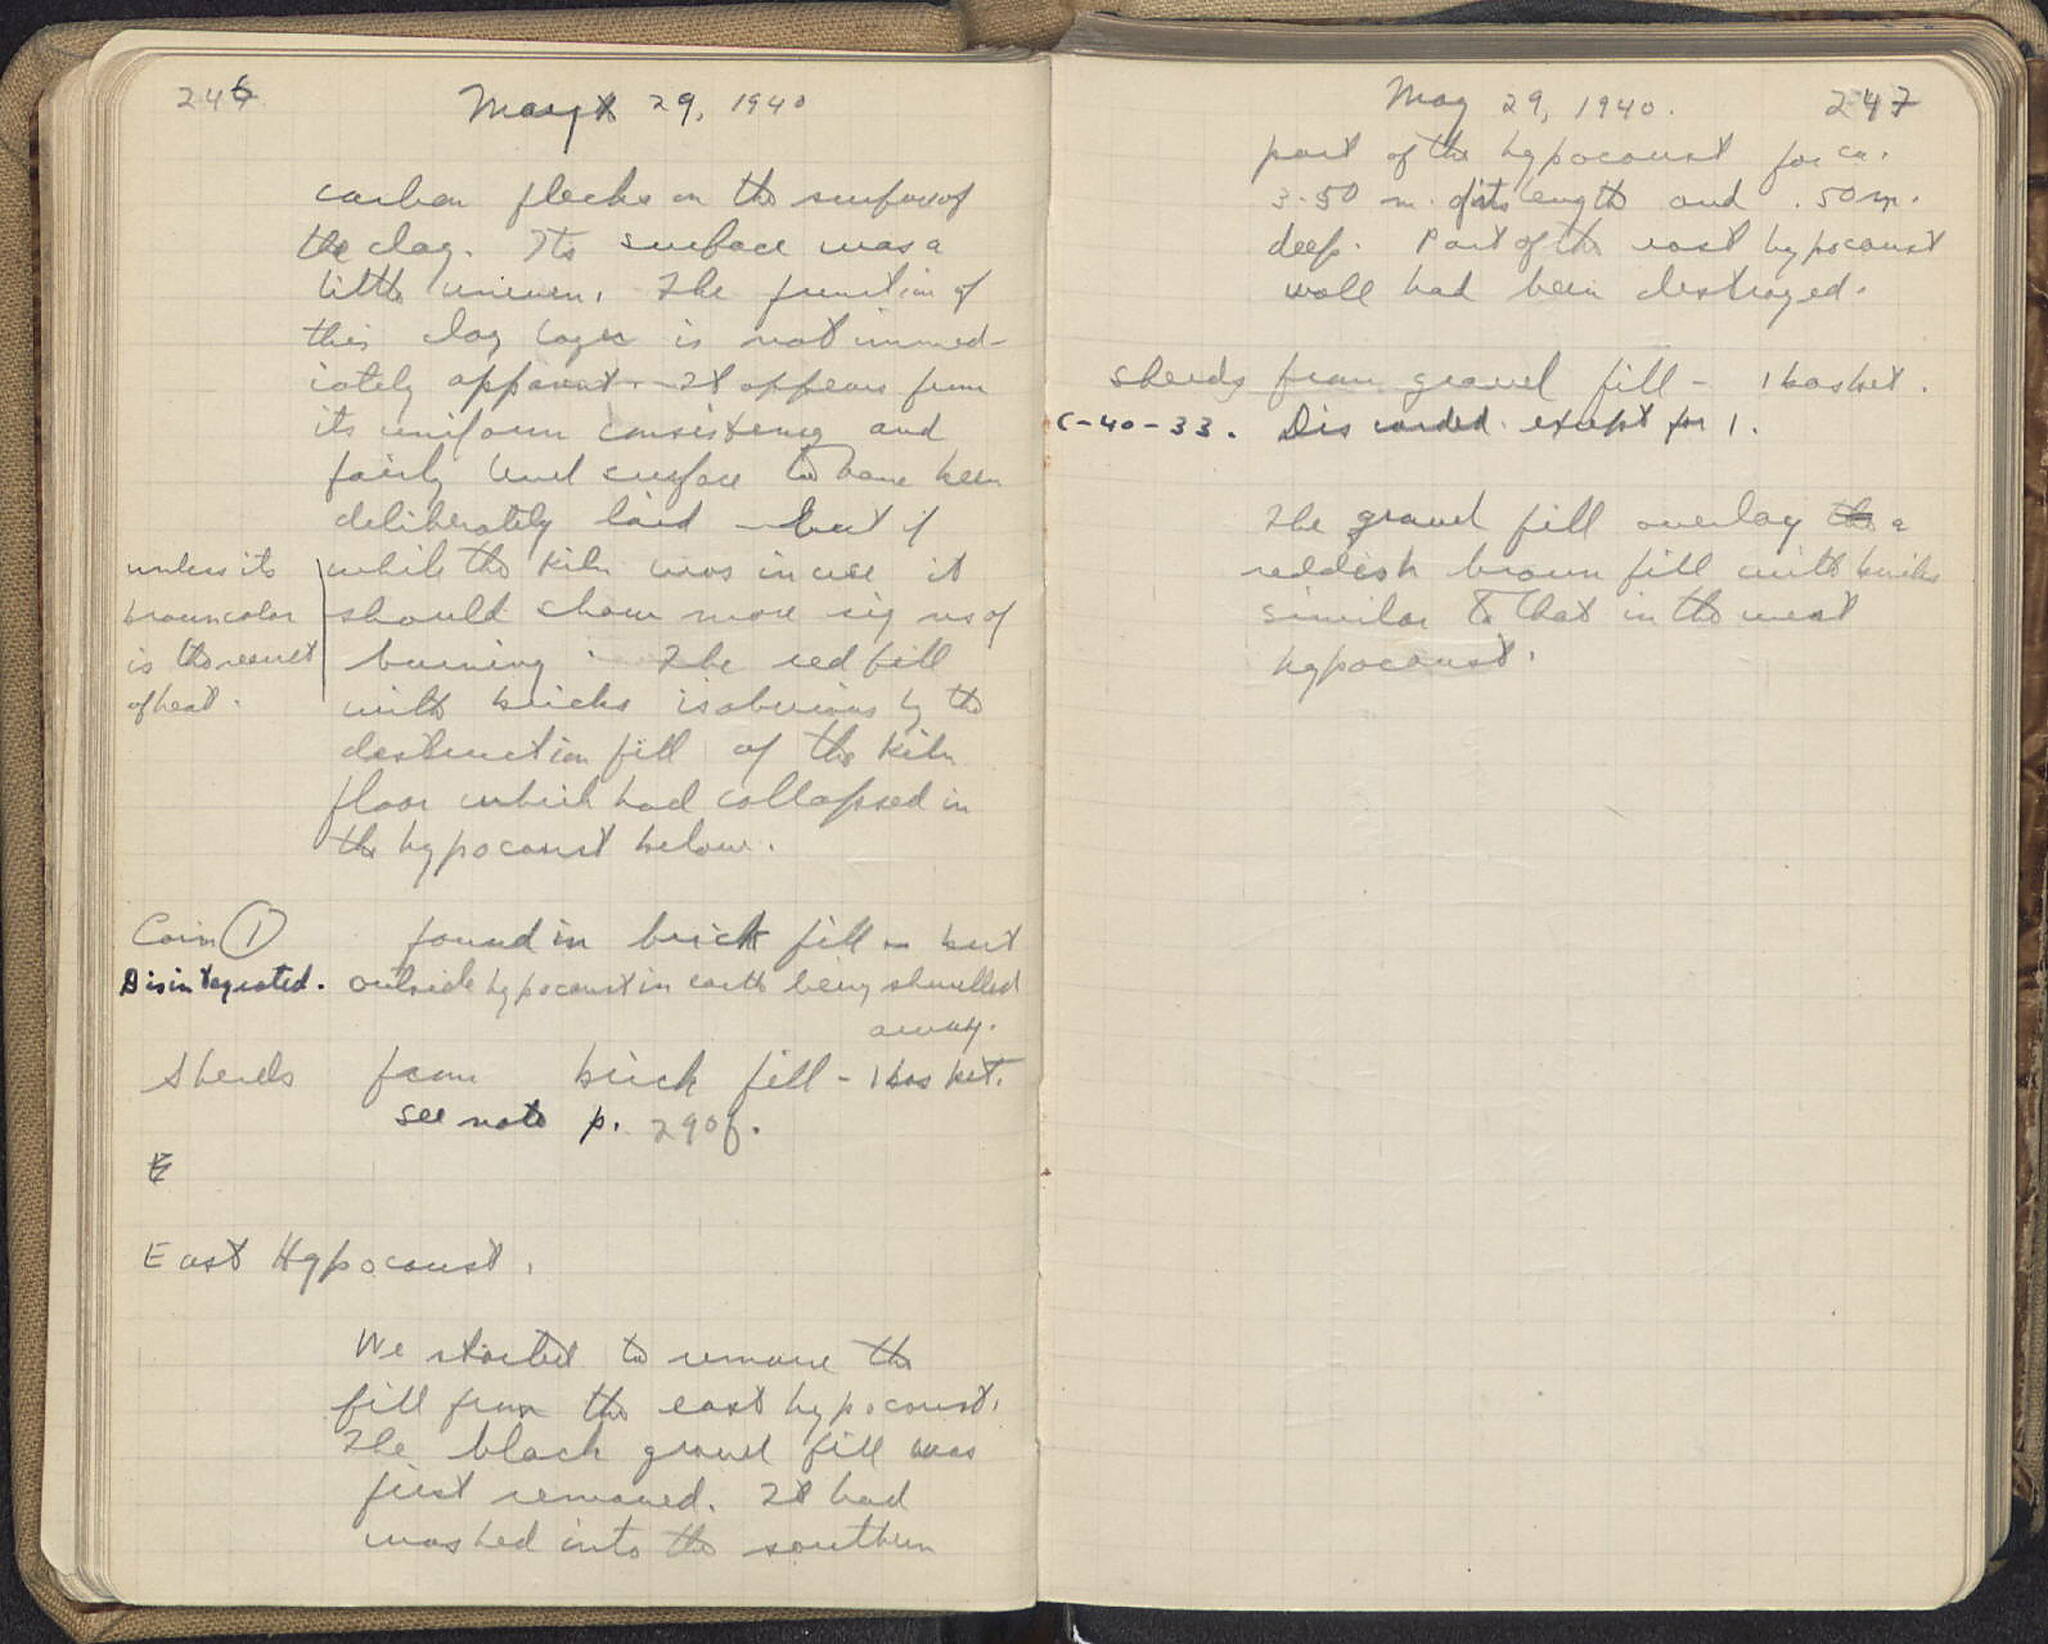 246 May 29, 1940
carbon flecks on the surface of
the clay. Its surface was a
little uneven. The function of
this clay layer is not immed-
iately apparent. It appears from
its uniform consistency and
fairly level surface to have been
deliberately laid - but if
while the kiln was in use it
should show more signs of
burning. The red fill
with bricks is obvious by the
destruction fill of the kiln
floor which had collapsed in
the hypocaust below.
unless its
brown color
is the result
of heat.
Coin 1 found in brick fill - but
Disintegrated. outside hypocaust in earth being shovelled
away.
Sherds from brick fill - 1 basket.
see note p. 290f.
E
East Hypocaust.
We started to remove the
fill from the east hypocaust.
The black gravel fill was
first removed. It had
washed into the southern
May 29, 1940. 247
part of the hypocaust for ca.
3.50 m. of its length and .50 m.
deep. Part of the east hypocaust
wall had been destroyed.
Sherds from gravel fill - 1 basket.
C-40-33. Discarded except for 1.
The gravel fill overlay the a
reddish brown fill with bricks
similar to that in the west
hypocaust.